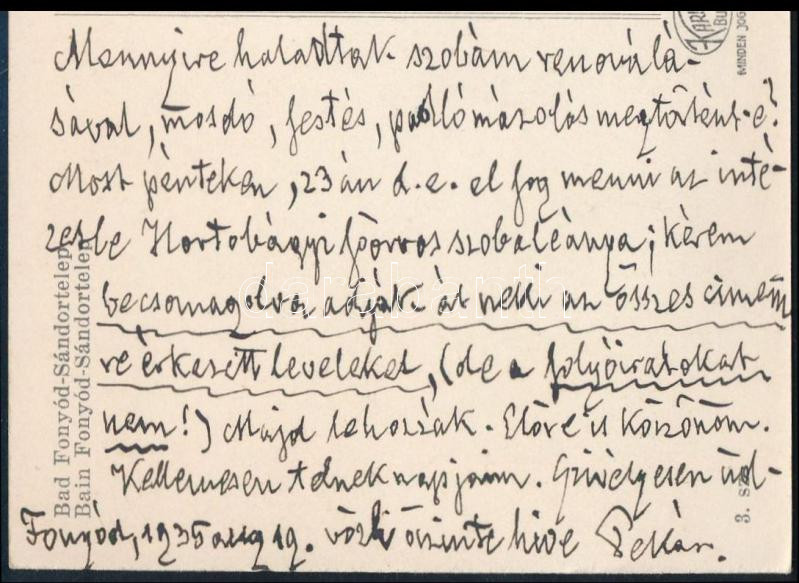 Mennyire haladtak szobám renoválá-
sával, mosdó, festés, padlómázolás megtörtént-e?
Most pénteken, 23án d.e. el fog menni az inté-
zetbe Hortobágyi főorvos szobaleánya; kérem
becsomagolva adják át neki az összes címem-
re érkezett leveleket, (de a folyóiratokat
nem!) Majd lehozzák. Előre is köszönöm.
Kellemesen telnek napjaim. Szívélyesen üd-
Fonyód, 1935 aug 19. vözli őszinte híve Pekár.
Bad Fonyód-Sándortelep
Bain Fonyód-Sándortelep
3. sz.
KAR
BU
MINDEN JOG
darabanth